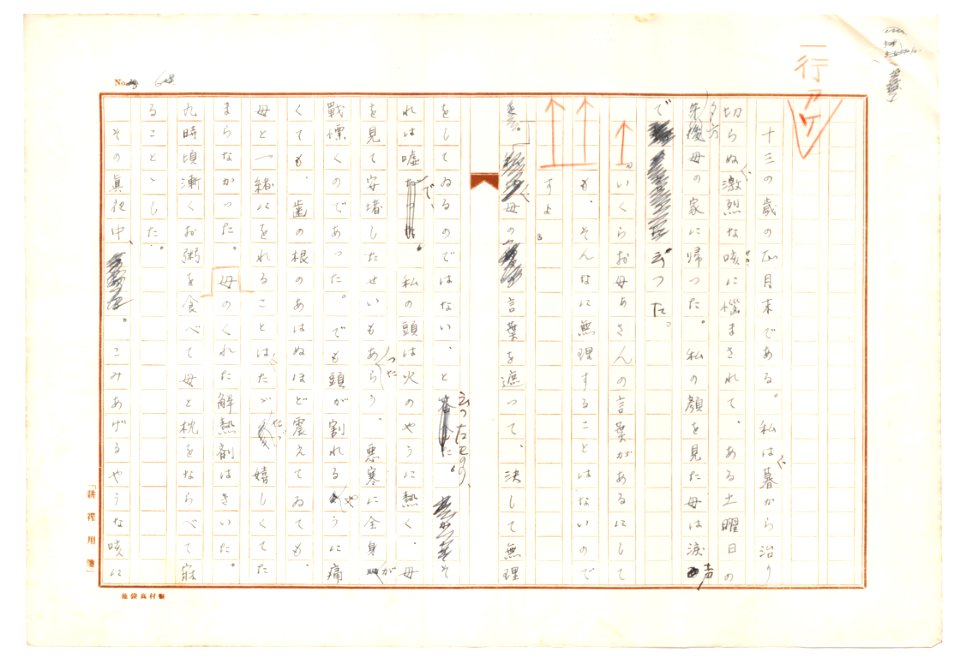 No. 64
一行アケ
十三の歳の五月末である。私は暮から治り
切らぬ激烈な咳に悩まされて、ある土曜日の
夕方母の家に帰った。私の顔を見た母は涙声
で云った。
「いくらお母あさんの言葉があるにして
も、そんなに無理することはないので
すよ。」
母の言葉を遮って、決して無理
をしてゐるのではない、と云ったものゝ、そ
れは嘘で、私の頭は火のやうに熱く、母
を見て安堵したせいもあつた、悪寒に全身が
戦慄くのであった。でも頭が割れるやうに痛
くても、歯の根のあはぬほど震えてゐても、
母と一緒にをれることはたゞ嬉しくてた
まらなかった。母のくれた解熱剤はきいた。
九時頃漸くお粥を食べて母と枕をならべて寐
ることゝした。
その真夜中、こみあげるやうな咳に
「耕裡用箋」